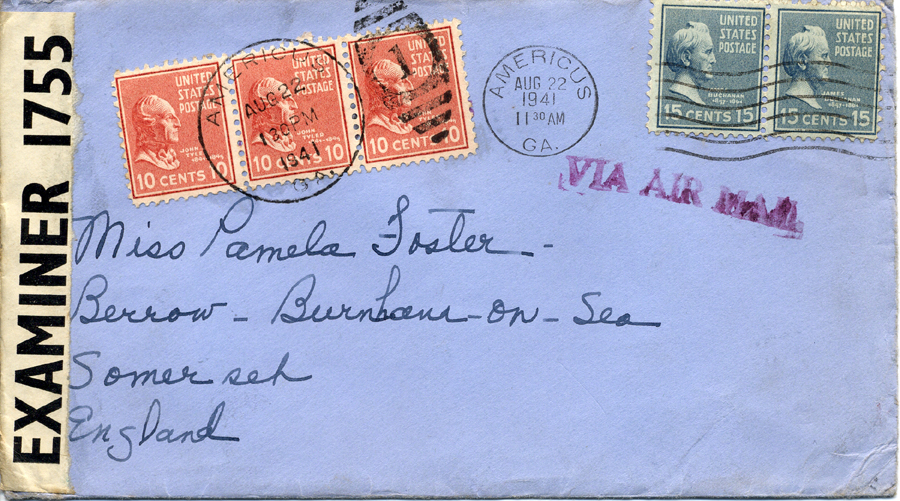 EXAMINER 1755
UNITED STATES POSTAGE
JOHN TYLER
10 CENTS 10
UNITED STATES POSTAGE
10 CENTS 10
UNITED STATES POSTAGE
10 CENTS 10
AMERICUS
AUG 22
1 30 PM
1941
GA.
1
AMERICUS
AUG 22
1941
11 30 AM
GA.
UNITED STATES POSTAGE
JAMES BUCHANAN
15 CENTS 15
UNITED STATES POSTAGE
JAMES BUCHANAN
15 CENTS 15
VIA AIR MAIL
Miss Pamela Foster -
Berrow - Burnham-on-Sea
Somerseh
England